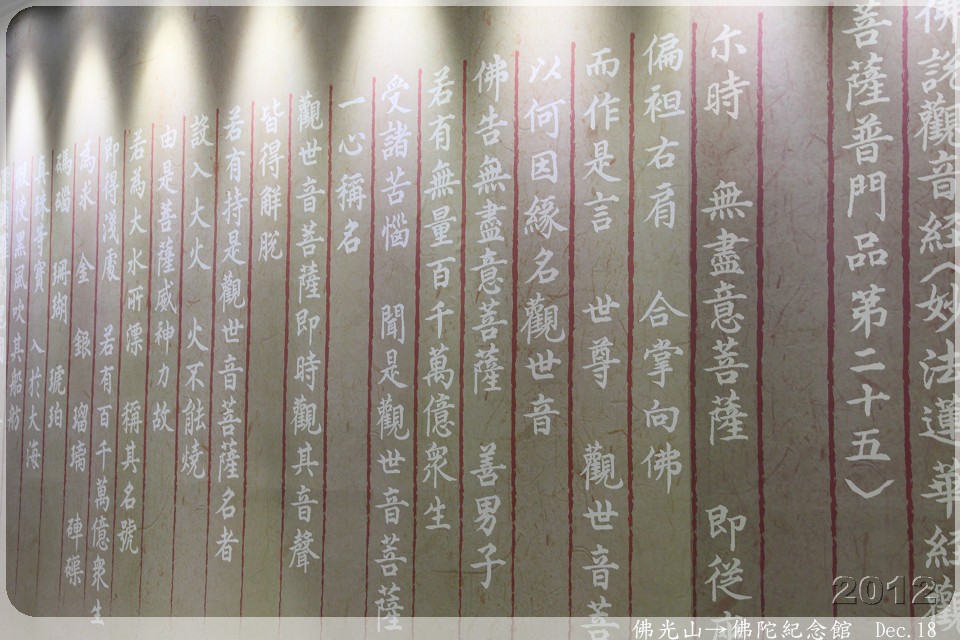 佛說觀音經(妙法蓮華經觀
菩薩普門品第二十五)
尒時 無盡意菩薩 即從
偏袒右肩 合掌向佛
而作是言 世尊 觀世音菩
以何因緣名觀世音
佛告無盡意菩薩 善男子
若有無量百千萬億眾生
受諸苦惱 聞是觀世音菩薩
一心稱名
觀世音菩薩即時觀其音聲
皆得解脫
若有持是觀世音菩薩名者
設入大火 火不能燒
由是菩薩威神力故
若為大水所漂 稱其名號
即得淺處 若有百千萬億眾生
為求 金 銀 瑠璃 硨磲
碼瑙 珊瑚 琥珀
真珠等寶 入於大海
假使黑風吹其船舫
2012
佛光山→佛陀紀念館 Dec.18